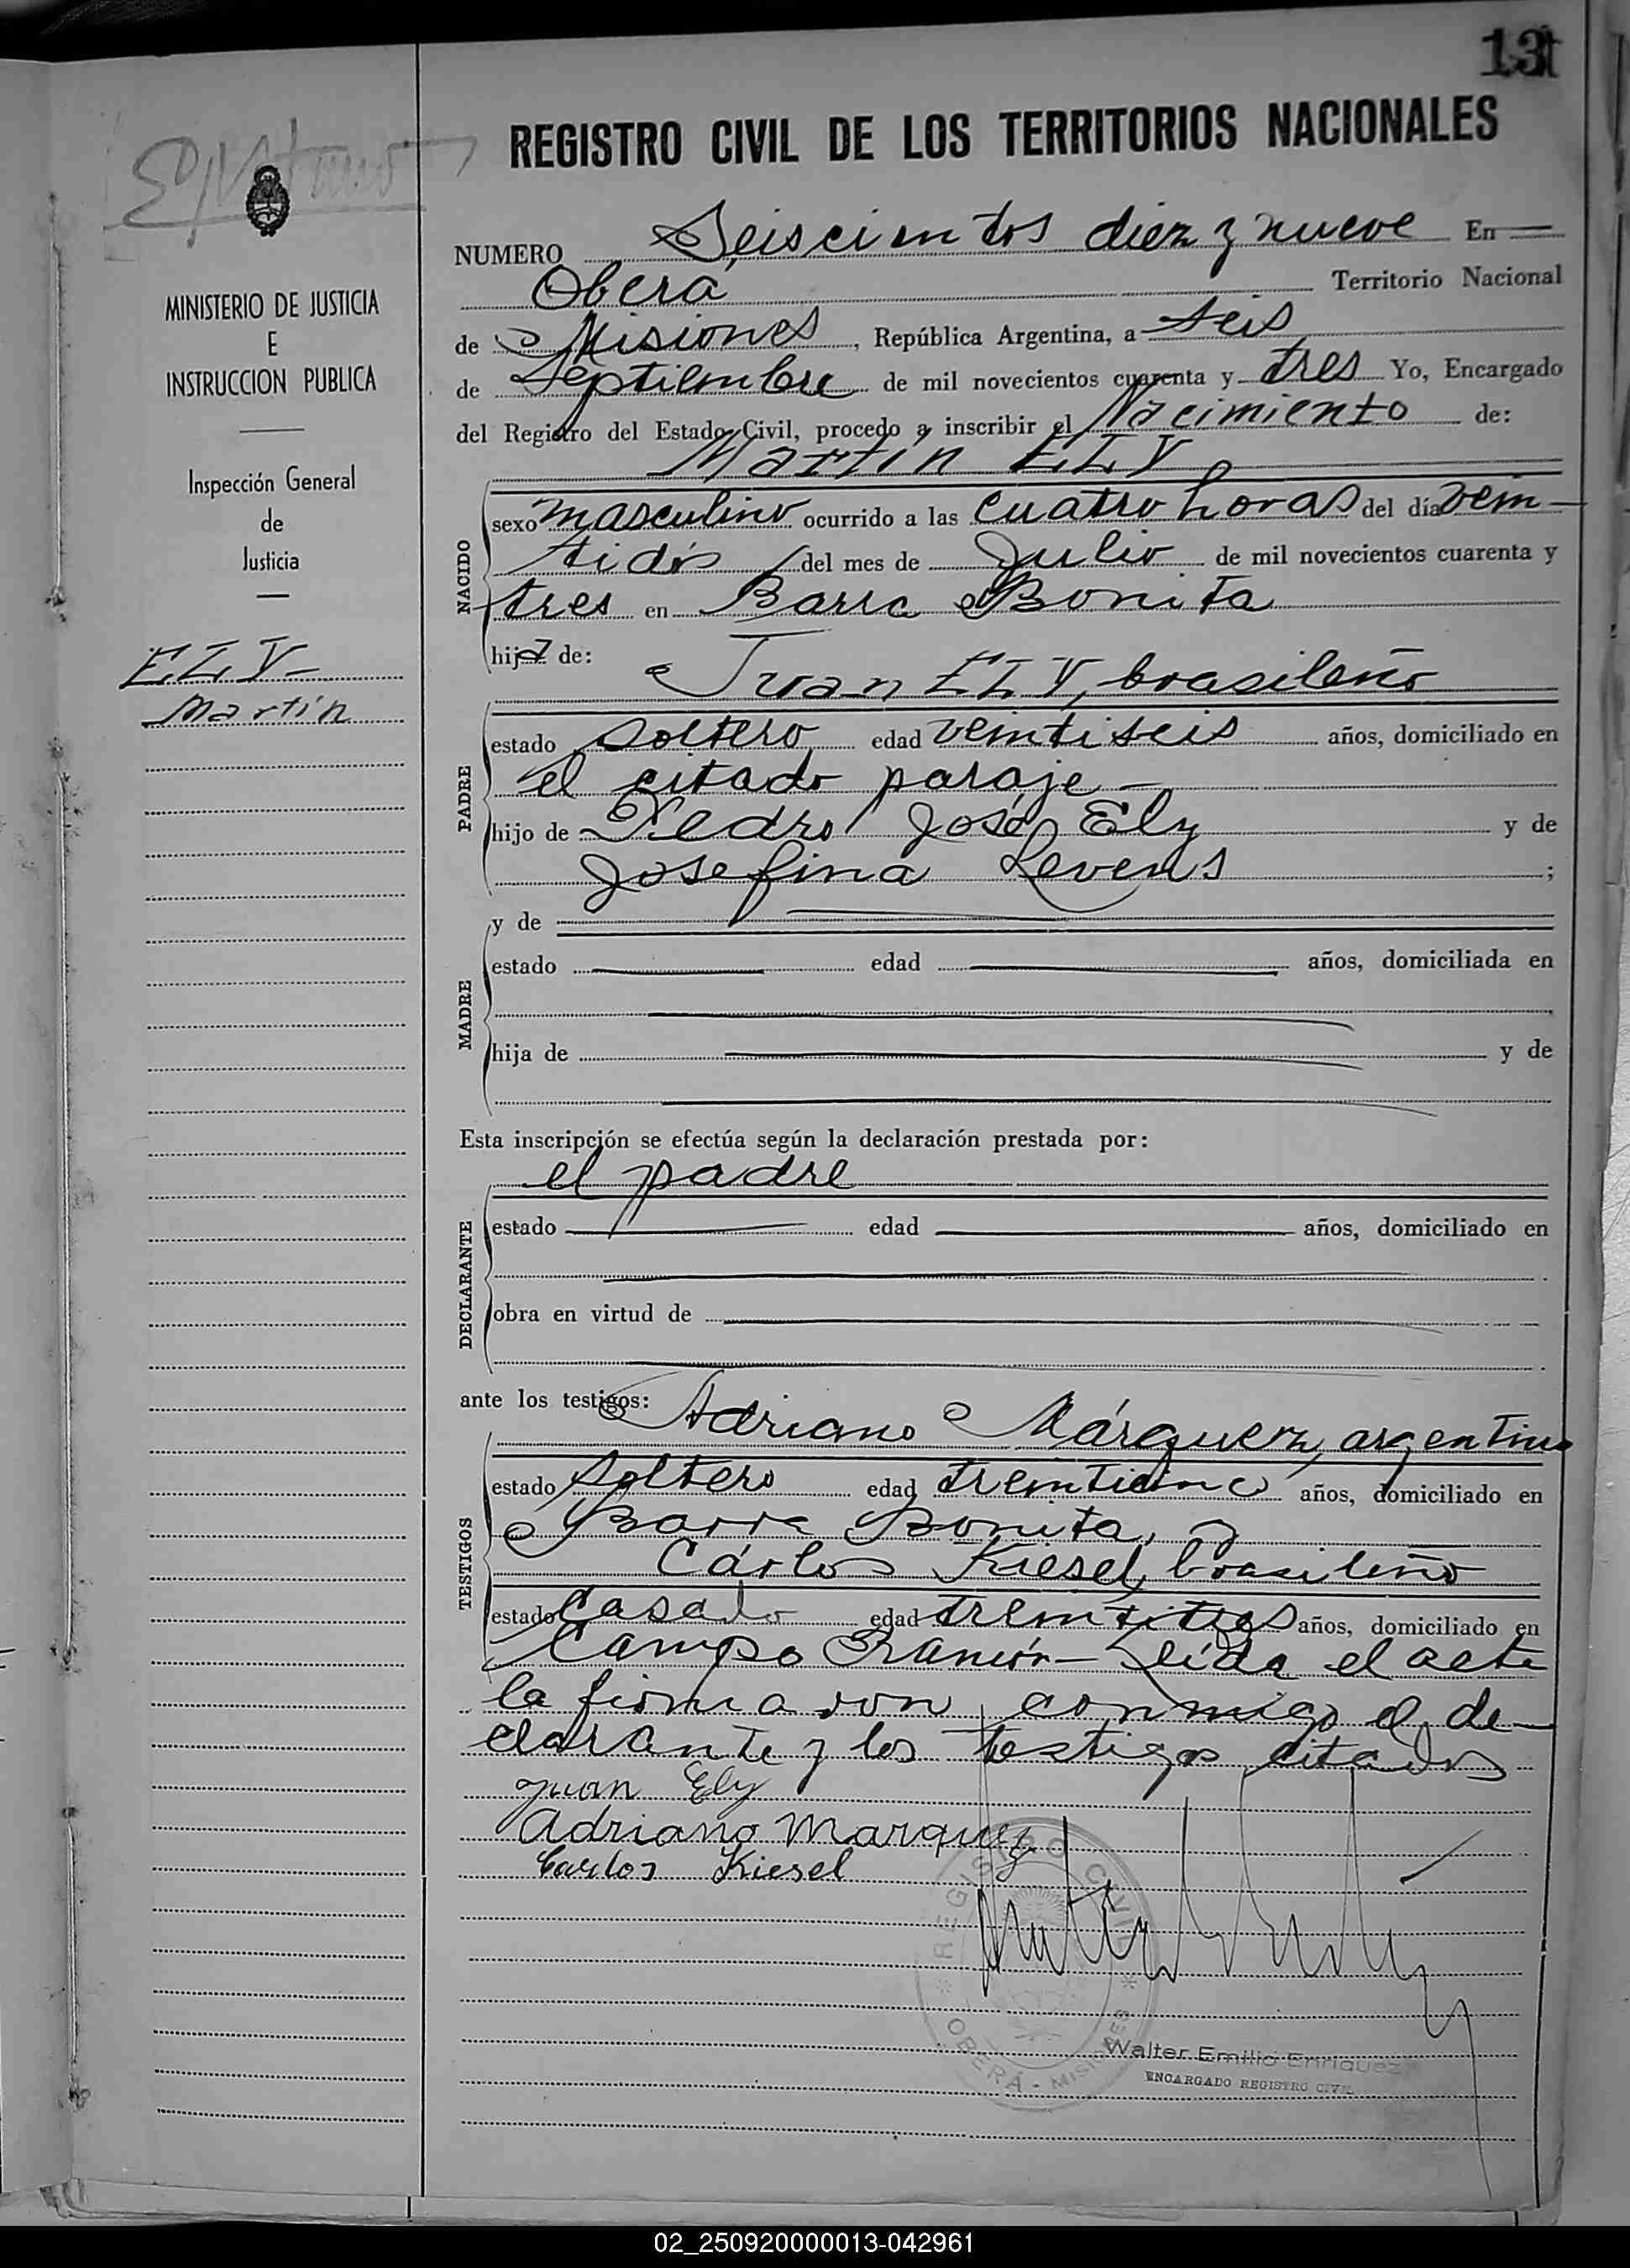 13
REGISTRO CIVIL DE LOS TERRITORIOS NACIONALES
NUMERO Seiscientos diez y nueve En
Oberá Territorio Nacional
de Misiones, República Argentina, a seis
de Septiembre de mil novecientos cuarenta y tres Yo, Encargado
del Registro del Estado Civil, procedo a inscribir el Nacimiento de:
Martín ELY
NACIDO
sexo masculino ocurrido a las cuatro horas del día vein-
tidós del mes de Julio de mil novecientos cuarenta y
tres en Barra Bonita
hijo de:
Juan ELY, brasileño
PADRE
estado soltero edad veintiseis años, domiciliado en
el citado paraje-
hijo de Pedro José Ely y de
Josefina Levens;
MADRE
y de
estado edad años, domiciliada en
hija de y de
Esta inscripción se efectúa según la declaración prestada por:
el padre
DECLARANTE
estado edad años, domiciliado en
obra en virtud de
ante los testigos:
Adriano Márquez, argentino
TESTIGOS
estado soltero edad treinticinco años, domiciliado en
Barra Bonita, y
Cárlos Kiesel, brasileño
estado casado edad treintitres años, domiciliado en
Campo Ramón- Leida el acta
la firmaron conmigo el de-
clarante y los testigos citados
Juan Ely
Adriano Marquez
Carlos Kiesel
REGISTRO CIVIL
OBERÁ - MISIONES
Walter Emilio Enriquez
ENCARGADO REGISTRO CIVIL
MINISTERIO DE JUSTICIA
E
INSTRUCCION PUBLICA
Inspección General
de
Justicia
ELY-
Martín
02_250920000013-042961